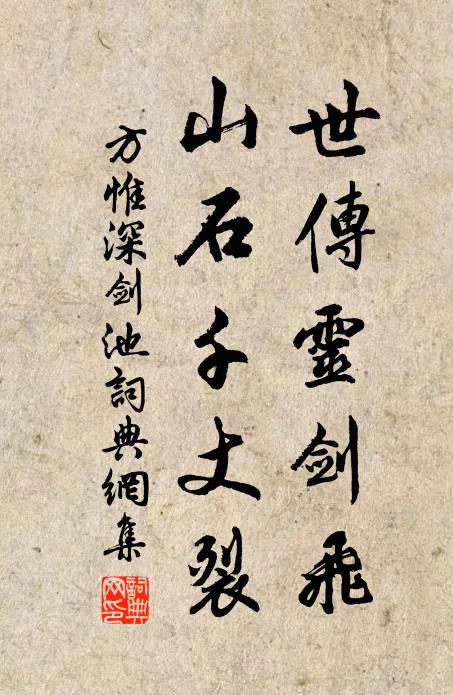 世傳靈劍飛
山石千丈裂
方惟深劍池詞典網集
詞典网印